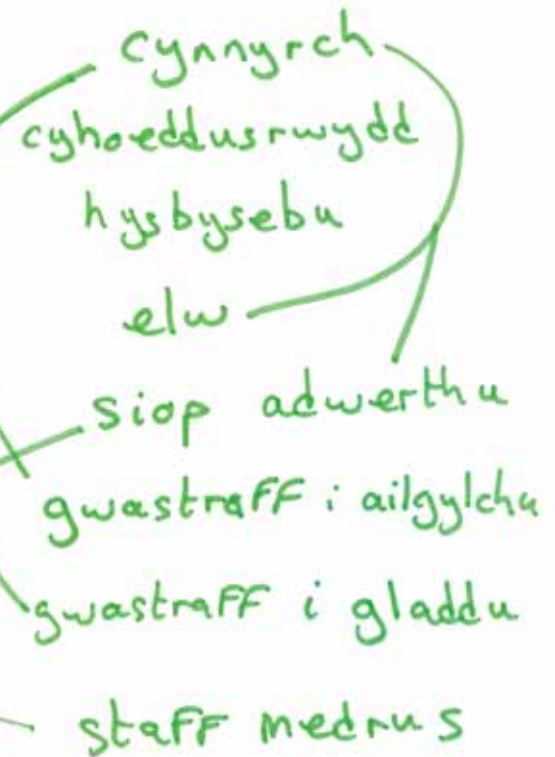 cynnyrch
cyhoeddusrwydd
hysbysebu
elw
siop adwerthu
gwastraff i ailgylchu
gwastraff i gladdu
staff medrus